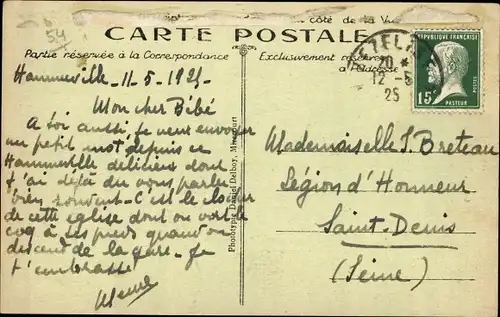 54
côté de la Vue
CARTE POSTALE
Partie réservée à la Correspondance
Exclusivement réservée
à l'Adresse
Hammeville 11-5-1925
Mon cher Bébé
A toi aussi, je veux envoyer
un petit mot depuis ce
Hammeville délicieux dont
t'ai déjà du vous parler
bien souvent - C'est le
de cette église dont on voit le
coq à ses pieds quand on
descend de la gare - Je
t'embrasse
Phototypie Daniel Delboy, Mirecourt
VEZELI
20
12-5
25
RÉPUBLIQUE FRANÇAISE
15c
POSTES
PASTEUR
Mademoiselle S. Breteau
Légion d'Honneur
Saint-Denis
(Seine)